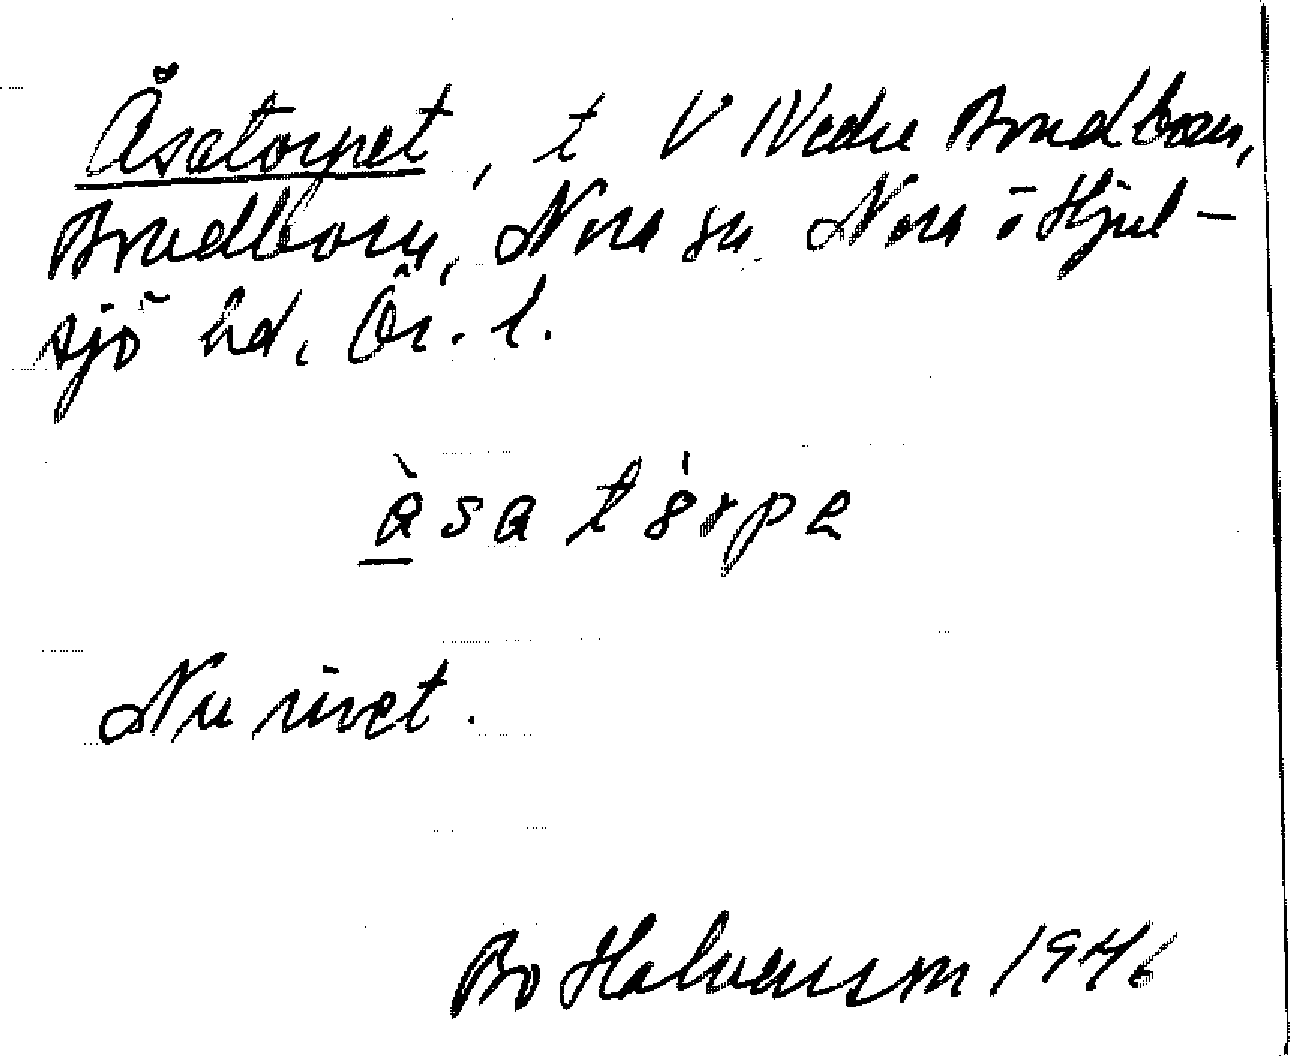 Åsatorpet, t V Nedre Bredborn,
Bredborn, Nora sn Nora o Hjul-
sjö hd, Ör. l.
àsa tórpe
Nu rivet.
Bo Halvarsson 1946